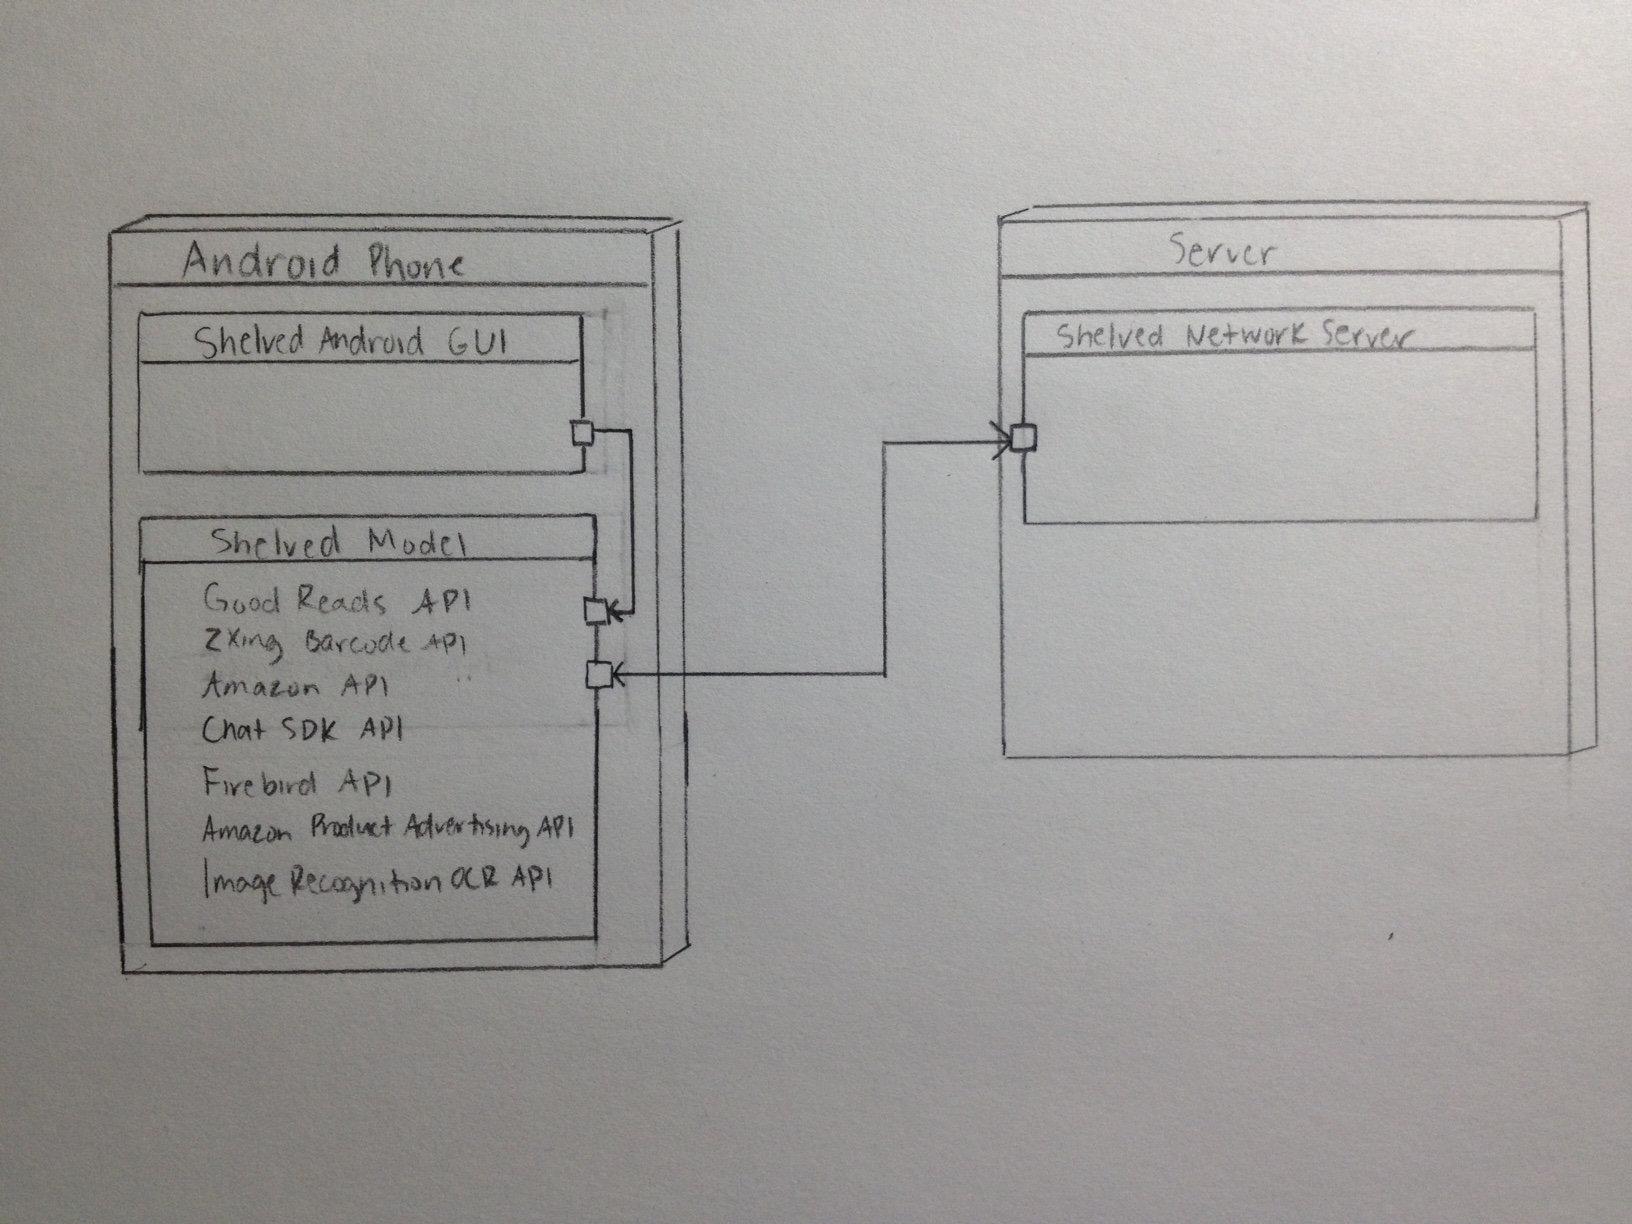 Android Phone
Shelved Android GUI
Shelved Model
Good Reads API
ZXing Barcode API
Amazon API
Chat SDK API
Firebird API
Amazon Product Advertising API
Image Recognition OCR API
Server
Shelved Network Server